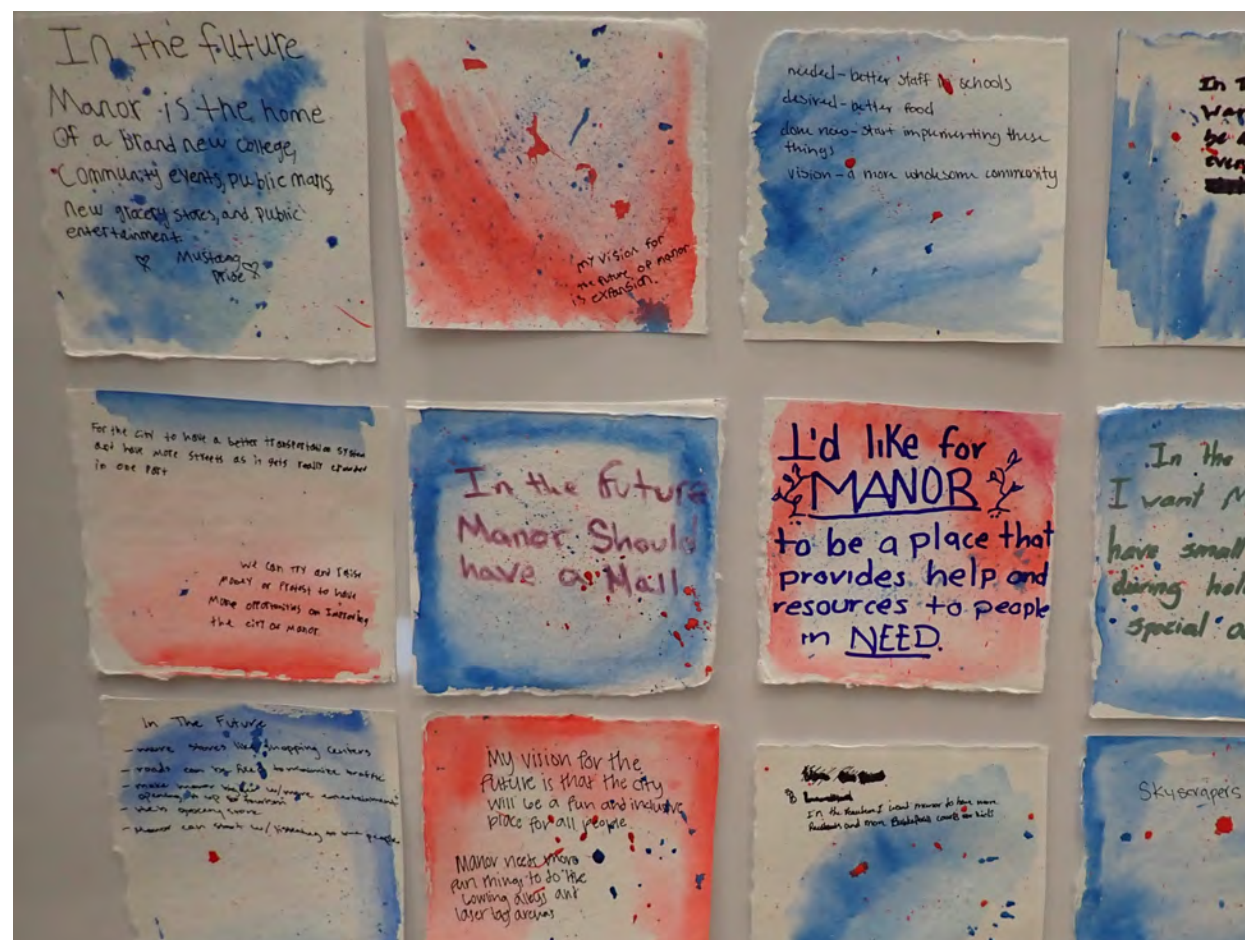 In the future
Manor is the home
of a Brand new college,
Community events, public malls,
new grocery stores, and public
entertainment.
Mustang
Pride
my vision for
the future of manor
is expansion.
needed - better staff in schools
desired - better food
done now - start implementing these
things
vision - a more wholesome community
In T
be a
every
For the city to have a better transportation system
and have more streets as it gets really crowded
in one part
We can try and raise
money or Protest to have
more opportunities on Improving
the city of Manor.
In the future
Manor Should
have a Mall.
I'd like for
MANOR
to be a place that
provides help and
resources to people
in NEED.
In the
I want M
have small
during hol
special
In The Future
- more stores like shopping centers
- roads can be fixed to minimize traffic
- make manor w/more entertainment
opening it up to tourism
- grocery store
- Manor can start w/ listening to people
My vision for the
future is that the city
will be a fun and inclusive
place for all people.
Manor needs more
fun things to do like
bowling alleys and
laser tag arenas
In the I want manor to have more
and more Basketball courts
Skyscrapers